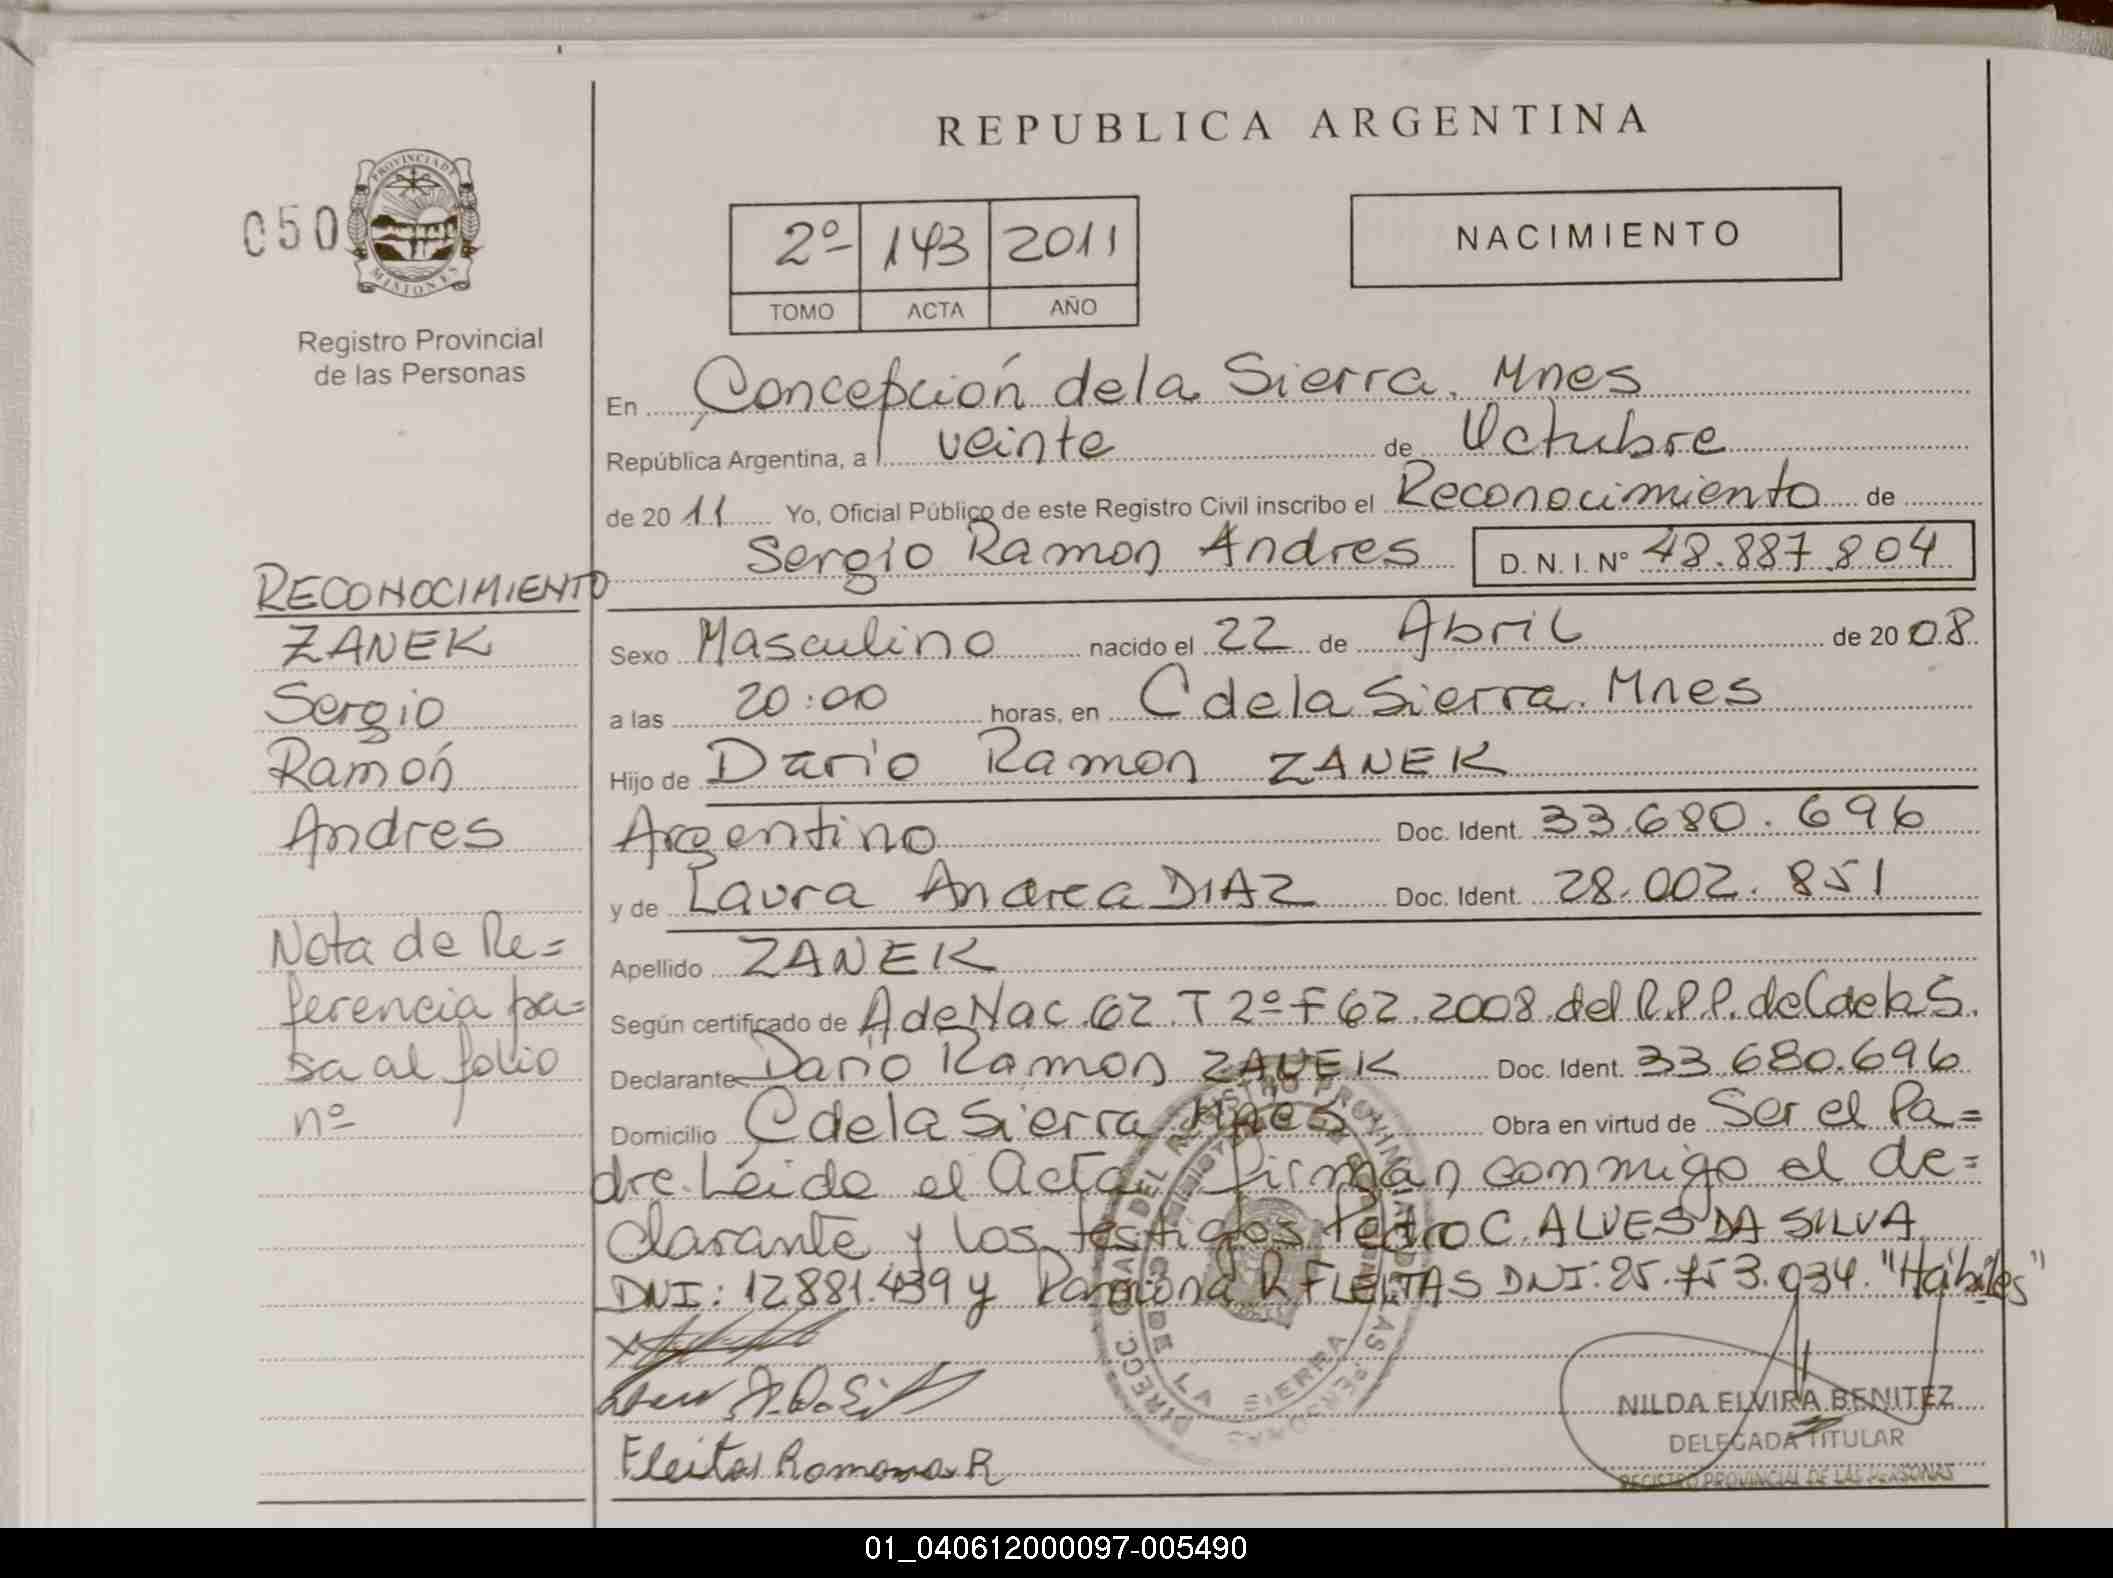 REPUBLICA ARGENTINA
050
PROVINCIA DE
MISIONES
2º 143 2011
TOMO ACTA AÑO
NACIMIENTO
Registro Provincial
de las Personas
En Concepción de la Sierra. Mnes
República Argentina, a veinte de Octubre
de 2011 Yo, Oficial Público de este Registro Civil inscribo el Reconocimiento de
Sergio Ramon Andres D. N. I. Nº 48.887.804
RECONOCIMIENTO
ZANEK
Sergio
Ramón
Andres
Nota de Re=
ferencia pa=
sa al folio
nº
Sexo Masculino nacido el 22 de Abril de 2008
a las 20:00 horas, en C de la Sierra. Mnes
Hijo de Dario Ramon ZANEK
Argentino Doc. Ident. 33.680.696
y de Laura Andrea DIAZ Doc. Ident. 28.002.851
Apellido ZANEK
Según certificado de A de Nac. 62. T 2º F 62. 2008 del R.P.P. de C de la S.
Declarante Dario Ramon ZANEK Doc. Ident. 33.680.696
Domicilio C de la Sierra Mnes Obra en virtud de Ser el Pa=
dre. Leida el Acta firman conmigo el de=
clarante y los testigos Pedro C. ALVES DA SILVA
DNI: 12.881.439 y Ramona R FLEITAS DNI: 25.153.034. "Hábiles"
Fleitas Ramona R
NILDA ELVIRA BENITEZ
DELEGADA TITULAR
REGISTRO PROVINCIAL DE LAS PERSONAS
01_040612000097-005490